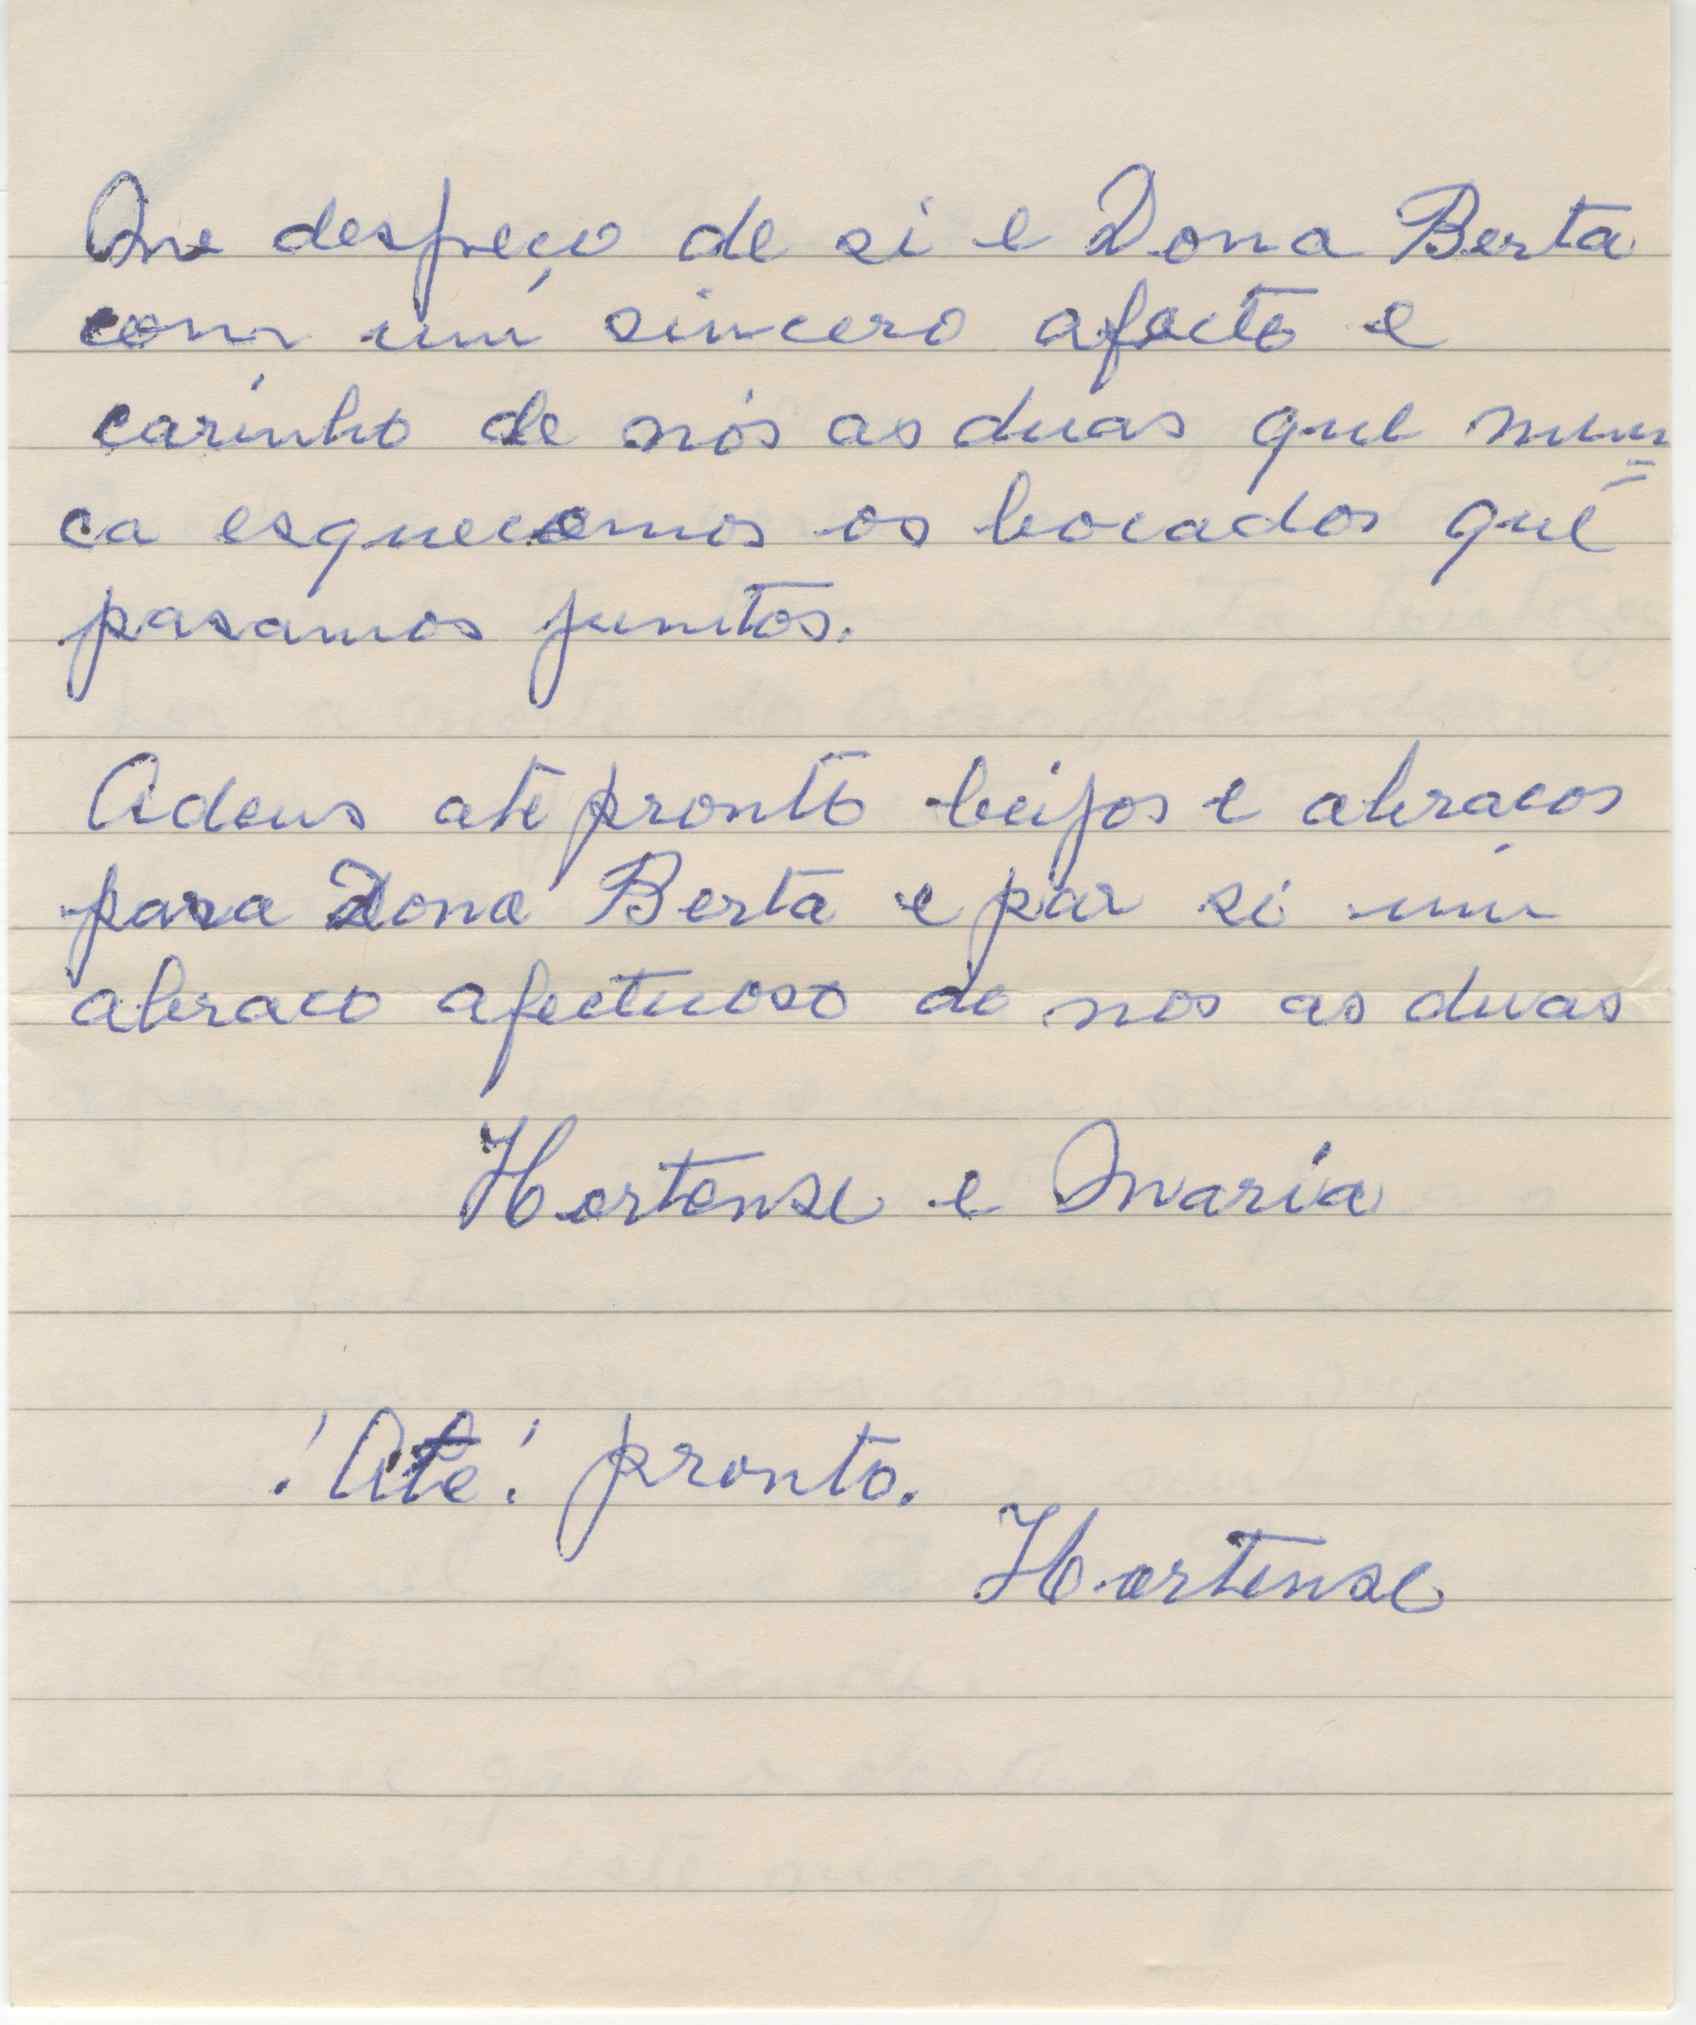 Me despeço de si e Dona Berta
com um sincero afecto e
carinho de nós as duas que nun=
ca esquecemos os bocados que
pasamos juntos.
Adeus até pronto beijos e abraços
para Dona Berta e par si um
abraco afectuoso de nos as duas
Hortense e Maria
¡Até! pronto.
Hortense